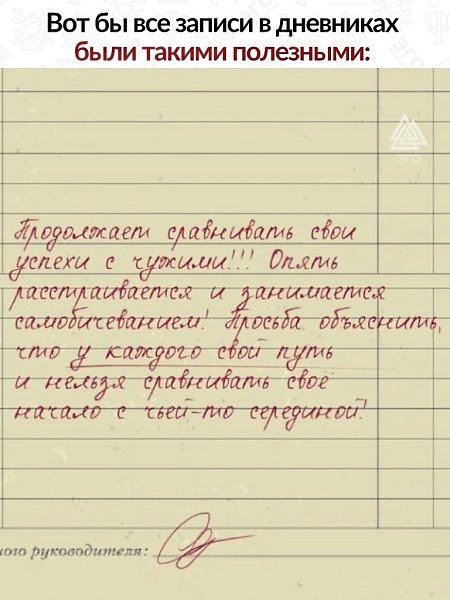 Вот бы все записи в дневниках
были такими полезными:
ЭГО
Продолжает сравнивать свои
успехи с чужими!!! Опять
расстраивается и занимается
самобичеванием! Просьба объяснить,
что у каждого свой путь
и нельзя сравнивать своё
начало с чьей-то серединой!
ного руководителя: